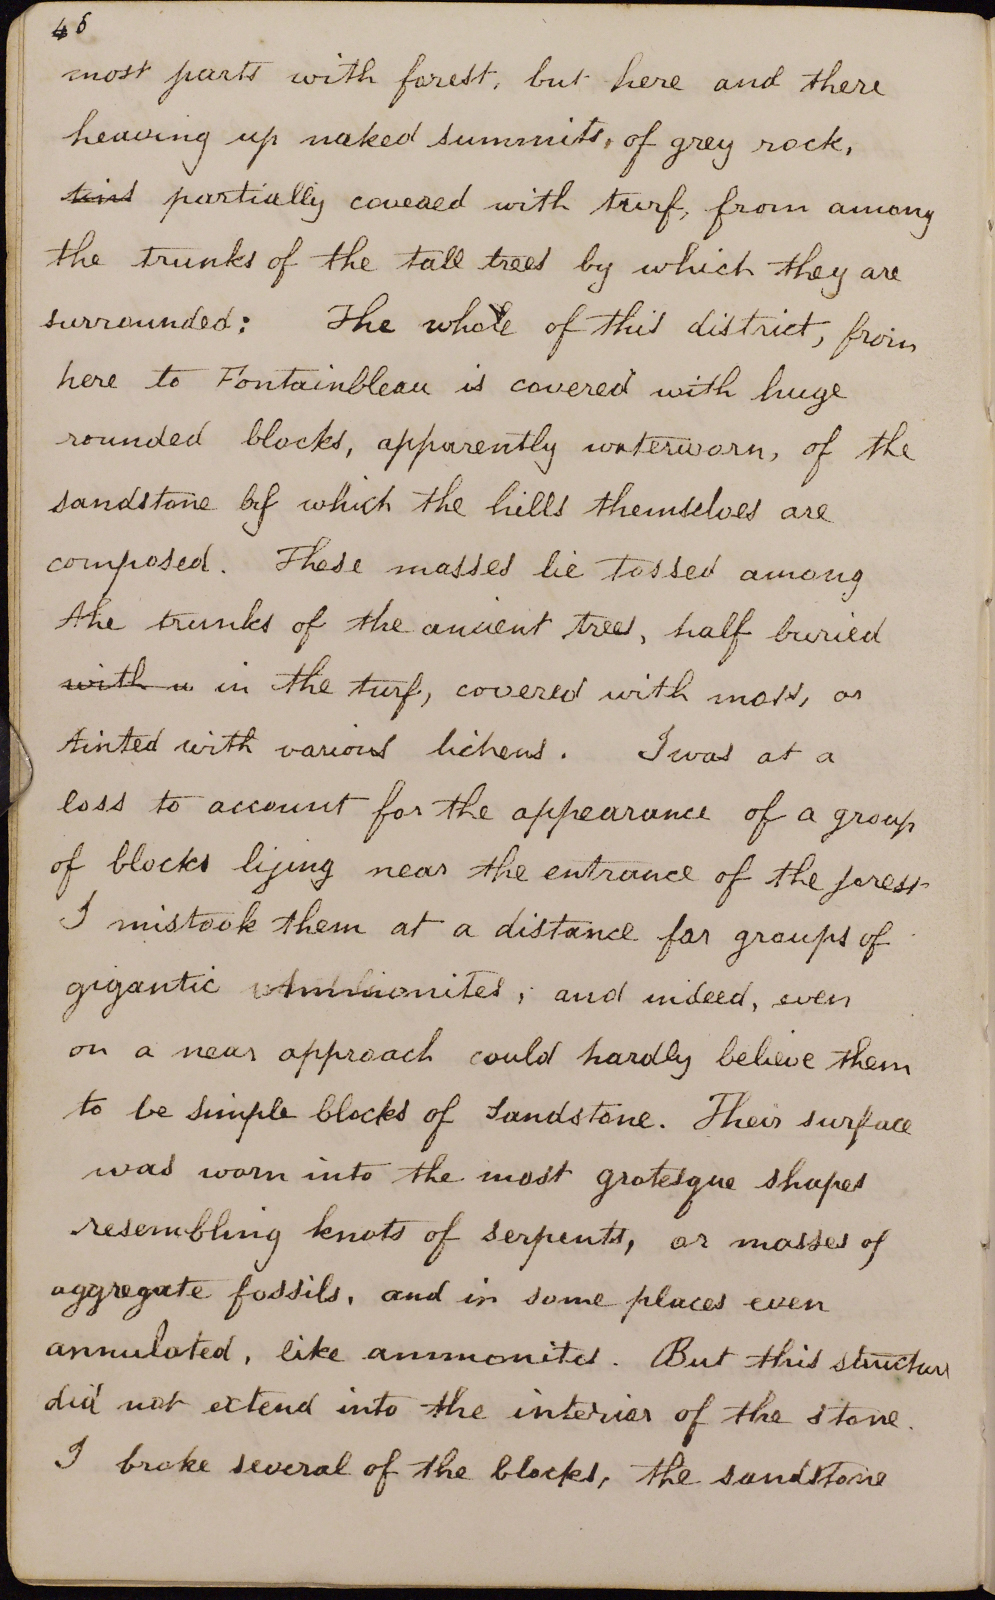 48
most parts with forest, but here and there
heaving up naked summits, of grey rock,
tins partially covered with turf, from among
the trunks of the tall trees by which they are
surrounded: The whole of this district, from
here to Fontainbleau is covered with huge
rounded blocks, apparently waterworn, of the
sandstone of which the hills themselves are
composed. These masses lie tossed among
the trunks of the ancient trees, half buried
with u in the turf, covered with moss, or
tinted with various lichens. I was at a
loss to account for the appearance of a group
of blocks lijing near the entrance of the forest
I mistook them at a distance for groups of
gigantic Ammonites, and indeed, even
on a near approach could hardly believe them
to be simple blocks of sandstone. Their surface
was worn into the most grotesque shapes
resembling knots of serpents, or masses of
aggregate fossils, and in some places even
annulated, like ammonites. But this structure
did not extend into the interior of the stone.
I broke several of the blocks, the sandstone